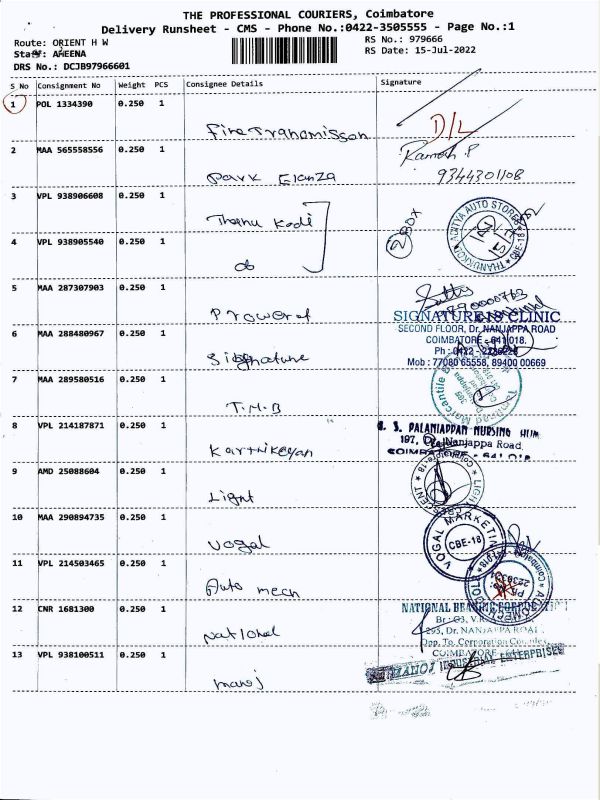 THE PROFESSIONAL COURIERS, Coimbatore
Delivery Runsheet - CMS - Phone No.:0422-3505555 - Page No.:1
Route: ORIENT H W
RS No.: 979666
Staff: AMEENA
RS Date: 15-Jul-2022
DRS No.: DCJB97966601
S No Consignment No Weight PCS Consignee Details Signature
1 POL 1334390 0.250 1
Fire Transmisson
D/L
2 MAA 565558556 0.250 1
Park Elanza
Ramesh P
9344301108
3 VPL 938906608 0.250 1
Thanu Kodi
2 BOX
ADITYA AUTO STORES
CBE-18
4 VPL 938905540 0.250 1
do
5 MAA 287307903 0.250 1
6 MAA 288480967 0.250 1
Signature
SIGNATURE18 CLINIC
SECOND FLOOR, Dr. NANJAPPA ROAD
COIMBATORE - 641 018.
Mob : 77080 65558, 89400 00669
7 MAA 289580516 0.250 1
T.M.B
8 VPL 214187871 0.250 1
Karthikeyan
PALANIAPPAN NURSING HOM
197, Dr. Nanjappa Road
COIMBATORE - 641 018
9 AMD 25088604 0.250 1
Light
10 MAA 290894735 0.250 1
Vogal
VOGAL MARKETIN
CBE-18
11 VPL 214503465 0.250 1
Auto mech
12 CNR 1681300 0.250 1
National
NATIONAL BEARING CORPORATION
295, Dr. NANJAPPA ROAD
Opp. To. Corporation Complex
COIMBATORE
13 VPL 938100511 0.250 1
Manoj
MANOJ INDUSTRIAL ENTERPRISES